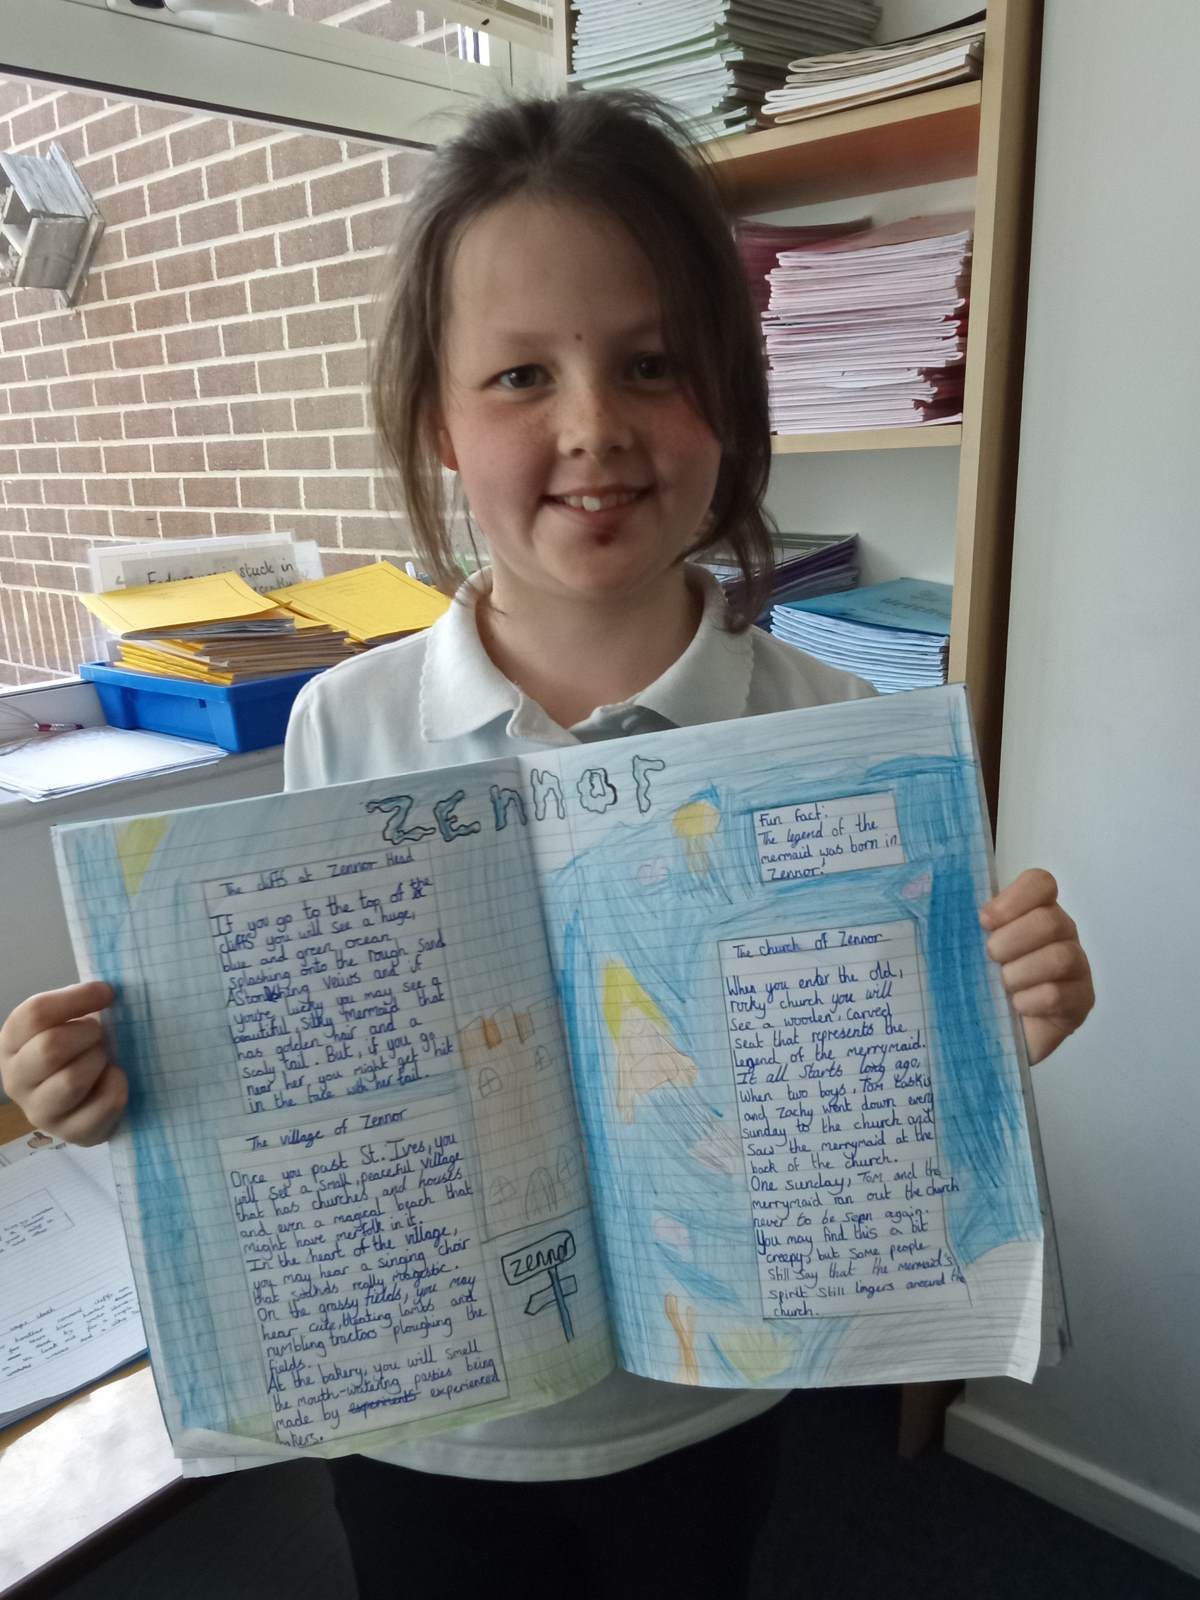 ZENNOR
The cliffs at Zennor Head
If you go to the top of the
cliffs you will see a huge,
blue and green ocean
splashing onto the rough sand
Astonishing veiws and if
you're lucky you may see a
beautiful, silky mermaid that
has golden hair and a
scaly tail. But, if you go
near her, you might get hit
in the face with her tail.
The village of Zennor
Once you past St. Ives, you
will see a small, peaceful village
that has churches and houses
and even a magical beach that
might have merfolk in it.
In the heart of the village,
you may hear a singing choir
that sounds really magestic.
On the grassy fields, you may
hear cute, bleating lambs and
rumbling tractors ploughing the
fields.
At the bakery, you will smell
the mouth-watering pasties being
made by experiments experienced
bakers.
zennor
Fun fact:
The legend of the
mermaid was born in
Zennor!
The church of Zennor
When you enter the old,
rocky church you will
see a wooden, carved
seat that represents the
legend of the merrymaid.
It all starts long ago,
when two boys, Tom
and Zachy went down every
sunday to the church and
saw the merrymaid at the
back of the church.
One sunday, Tom and the
merrymaid ran out the church
never to be seen again.
You may find this a bit
creepy, but some people
still say that the mermaid's
spirit still lingers around the
church.
stuck in